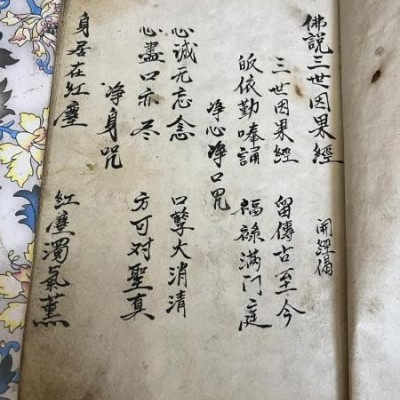 佛説三世因果經 開經偈
三世因果經 留傳古至今
皈依勤奉誦 福祿滿門庭
净心净口咒
心誠元忘念 口孽大消清
心盡口亦尽 方可对聖真
净身咒
身居在紅塵 紅塵濁氣薰